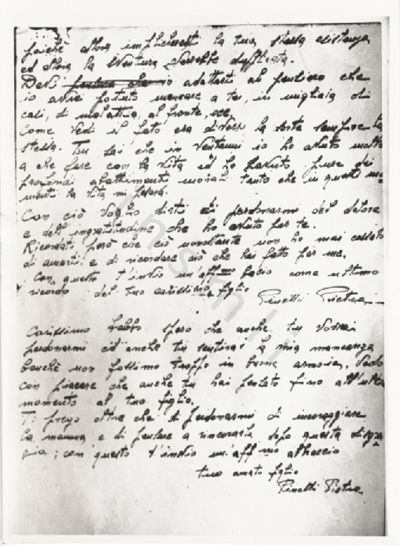 poichè allora impliche la tua stessa esistenza
ed allora la Ventura Sarebbe
Devi pensare che io adattarti al pensiero che
io avrei potuto mancare a te, in migliaia di
casi, di malattia, al fronte, ecc,
Come Vedi il lati era diversi la sorte sempre la
stessa. Tu sai che in vent'anni io ho avuto molto
a che fare con la vita ed ho avuto pure dei
profondi abattimenti morali tanto che in questi mo
menti la vita mi
Con ciò Voglio dirti di perdonarmi del dolore
e dell'ingratitudine che ho avuto per te.
Ricordati però che ciò nonostante non ho mai cessato
di amarti e di ricordare ciò che hai fatto per me.
Con questo t'invio un bacio come ultimo
ricordo del tuo carissimo figlio
Pinelli Pietro
Carissimo babbo Spero che anche tu Vorrai
perdonarmi ed anche tu sentirai la mia mancanza
benchè non fossimo troppo in buona armonia, Vedo
con piacere che anche tu hai pensato fino all'ultimo
momento al tuo figlio.
Ti prego oltre che di perdonarmi di incoraggiare
la mamma e di pensare a rincorarla dopo questa disgra
zia; con questo t'invio un aff.mo abbraccio
tuo amato figlio
Pinelli Pietro